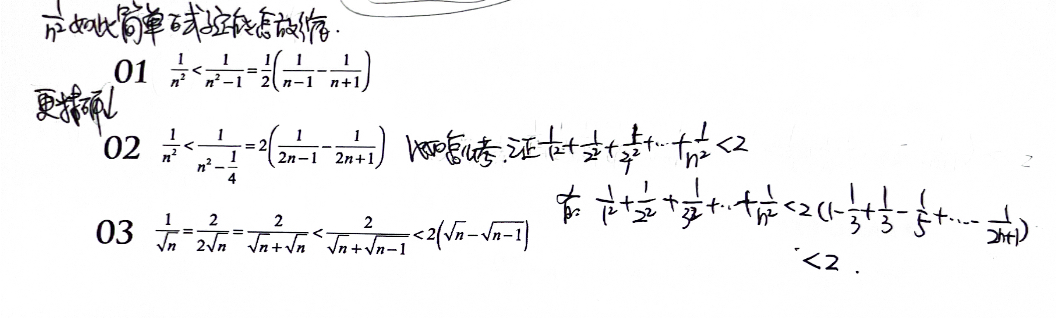 1/n² 如此简单的式子它能怎放缩.
01 1/n² < 1/(n²-1) = 1/2(1/(n-1) - 1/(n+1))
更精确↓
02 1/n² < 1/(n² - 1/4) = 2(1/(2n-1) - 1/(2n+1)) 怎么考.证 1/1² + 1/2² + 1/3² + ... + 1/n² < 2
1/1² + 1/2² + 1/3² + ... + 1/n² < 2(1 - 1/3 + 1/3 - 1/5 + ... - 1/(2n+1))
03 1/√n = 2/(2√n) = 2/(√n+√n) < 2/(√n+√n-1) < 2(√n - √n-1)
< 2 .